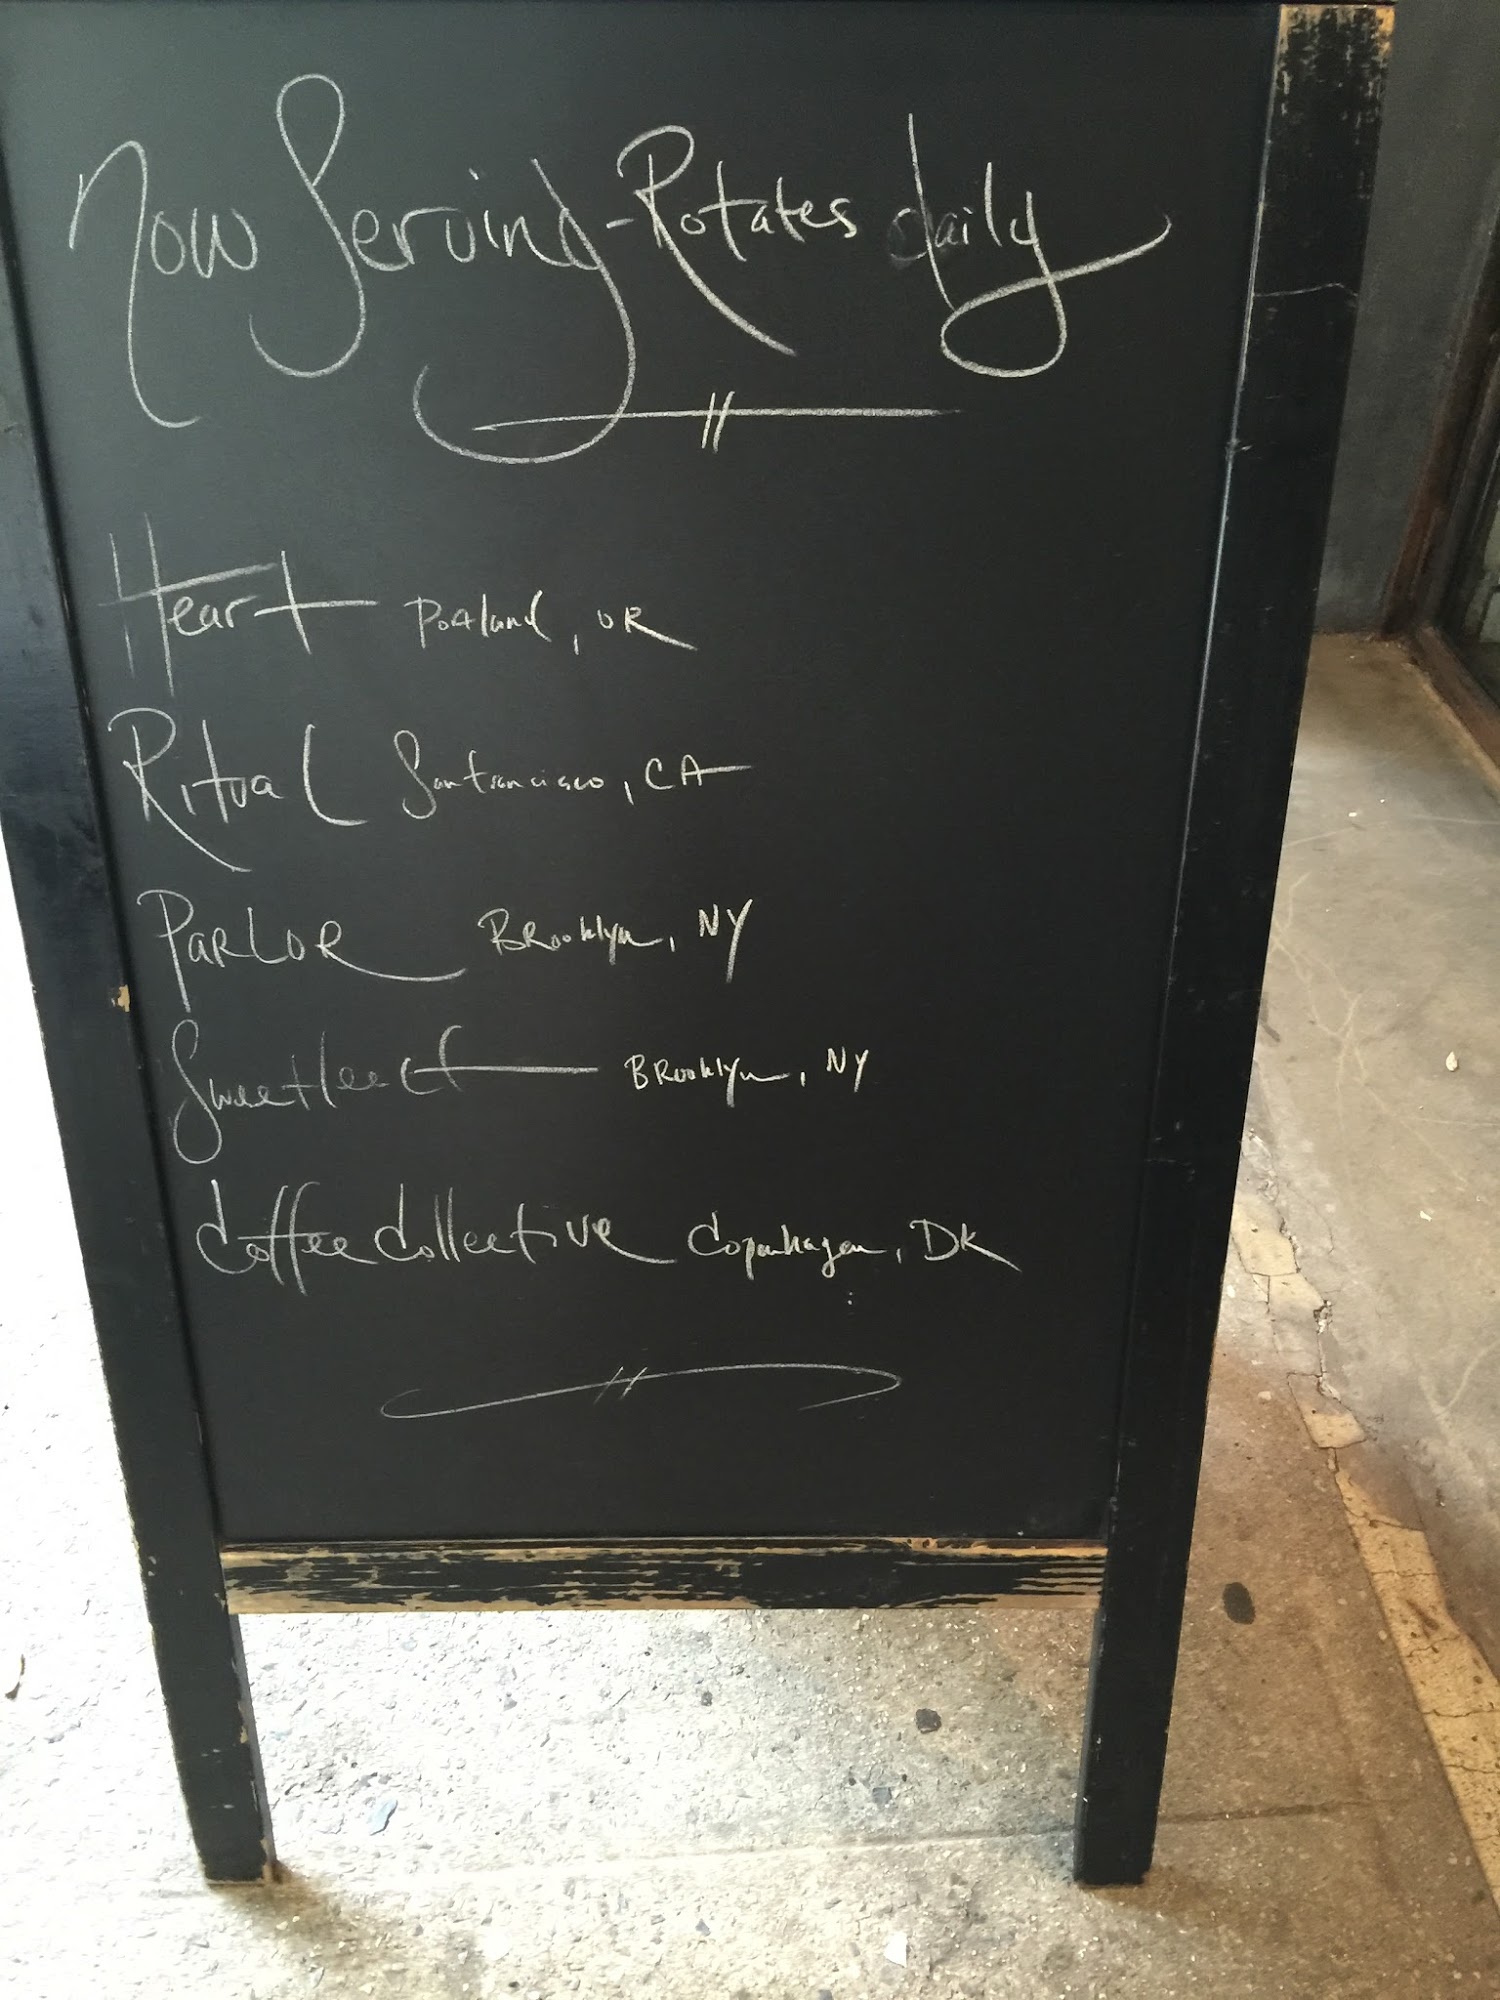 Now Serving - Rotates daily
Heart Portland, OR
Ritual San Francisco, CA
Parlor Brooklyn, NY
Sweetleaf Brooklyn, NY
Coffee Collective Copenhagen, DK